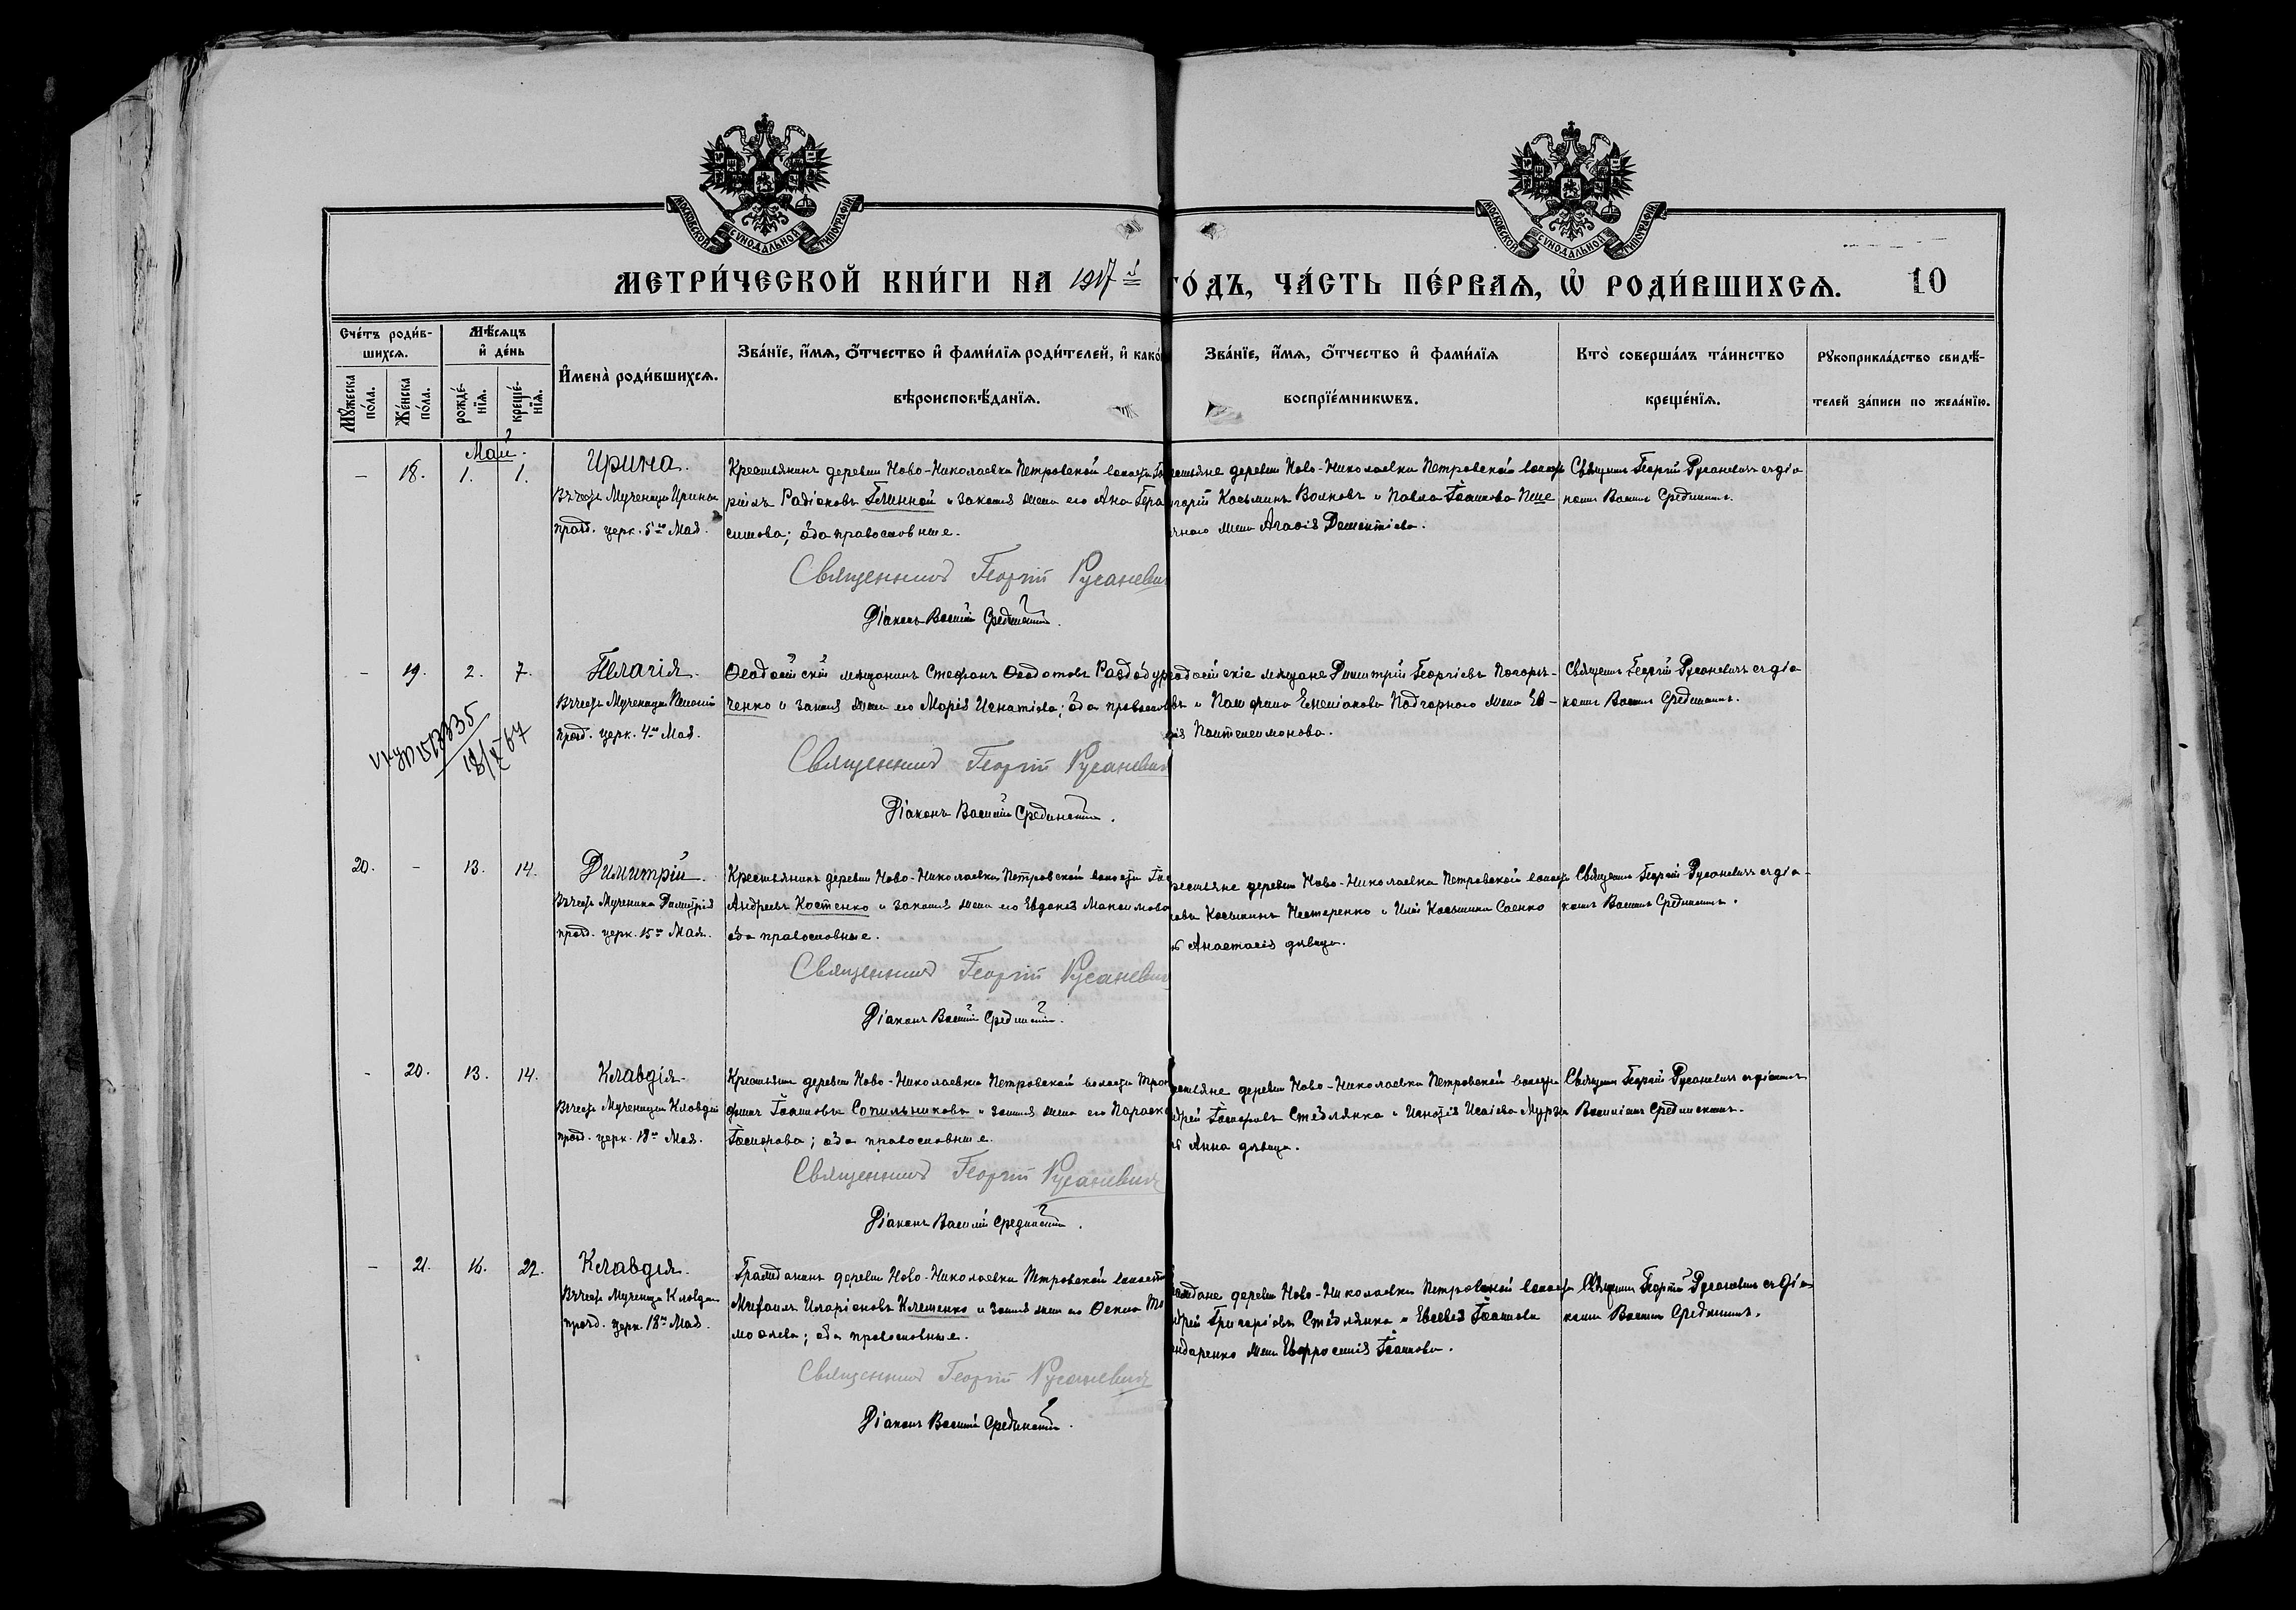 МОСКОВСКОЙ СѴНОДАЛЬНОЙ ТИПОГРАФІИ
МОСКОВСКОЙ СѴНОДАЛЬНОЙ ТИПОГРАФІИ
МЕТРИ́ЧЕСКОЙ КНИ́ГИ НА 1917 й
ГО́ДЪ, ЧА́СТЬ ПЕ́РВАѦ, Ѿ РОДИ́ВШИХСѦ.
10
Сче́тъ роди́в-
шихсѧ.
Мꙋ́жеска по́ла.
Же́нска по́ла.
Мѣ́сѧцъ
и҆ де́нь
рожде́-
нїѧ.
креще́-
нїѧ.
И҆мена̀ роди́вшихсѧ.
Зва́нїе, и҆́мѧ, ѻ҆́тчество и҆ фами́лїѧ роди́телей, и҆ како́
вѣроисповѣ́данїѧ.
Зва́нїе, и҆́мѧ, ѻ҆́тчество и҆ фами́лїѧ
воспрїе́мникѡвъ.
Кто̀ соверша́лъ та́инство
креще́нїѧ.
Рꙋкоприкла́дство свидѣ́-
телей за́писи по жела́нїю.
Май.
– 18. 1. 1. Ирина.
Въ честь Мученицы Ирины
празд. церк. 5го Мая.
Крестьянинъ деревни Ново-Николаевки Петровской волости
ріилъ Радіоновъ Глинной и законная жена его Анна Гера
симова; оба православные.
Священникъ Георгій Русаневич
Діаконъ Василій Срединскій.
естьяне деревни Ново-Николаевки Петровской волости
игорій Косьминъ Волковъ и Павла Іоаннова Пше
ичного жена Агаѳія Дементіева.
Священникъ Георгій Русаневичъ съ діа
кономъ Василіемъ Срединскимъ.
– 19. 2. 7. Пелагія.
Въ честь Мученицы Пелагіи
празд. церк. 4го Мая.
18/X 67
Ѳеодосійскій мѣщанинъ Стефанъ Ѳеодотовъ Раздобур
ченко и законная жена его Марія Игнатіева; оба православ
Священникъ Георгій Русаневич
Діаконъ Василій Срединскій.
еодосійскіе мѣщане Димитрій Георгіевъ Погорѣ-
въ и Памфила Емеліанова Подгорного жена Ев-
ія Пантелеимонова.
Священникъ Георгій Русаневичъ съ діа-
кономъ Василіемъ Срединскимъ.
20. – 13. 14. Димитрій.
Въ честь Мученика Димитрія
празд. церк. 15го Мая.
Крестьянинъ деревни Ново-Николаевки Петровской волости
Андреевъ Костенко и законная жена его Евдокія Максимова
оба православные.
Священникъ Георгій Русаневич
Діаконъ Василій Срединскій.
рестьяне деревни Ново-Николаевки Петровской волости
Косьминъ Нестеренко и Косьмина Саенко
Анастасія дѣвица.
Священникъ Георгій Русаневичъ съ діа-
кономъ Василіемъ Срединскимъ.
– 20. 13. 14. Клавдія
Въ честь Мученицы Клавдіи
празд. церк. 18го Мая.
Крестьянинъ деревни Ново-Николаевки Петровской волости Тро
фимъ Іоанновъ Сопильниковъ и законная жена его Параске
Іосифова; оба православные.
Священникъ Георгій Русаневичъ
Діаконъ Василій Срединскій.
естьяне деревни Ново-Николаевки Петровской волости
дрей Іосифовъ Стеблянко и Игнатія Исаіева
Анна дѣвица.
Священникъ Георгій Русаневичъ съ діакономъ
Василіемъ Срединскимъ.
– 21. 16. 22. Клавдія.
Въ честь Мученицы Клавдіи
празд. церк. 18го Мая.
Гражданинъ деревни Ново-Николаевки Петровской волости
Михаилъ Иларіоновъ Клименко и законная жена его Ѳекла
моѳеева; оба православные.
Священникъ Георгій Русаневичъ
Діаконъ Василій Срединскій.
аждане деревни Ново-Николаевки Петровской волости
дрей Григоріевъ Стеблянко и Евсевія Іоаннова
ндаренко жена Евфросинія Іоаннова.
Священникъ Георгій Русаневичъ съ діа-
кономъ Василіемъ Срединскимъ.